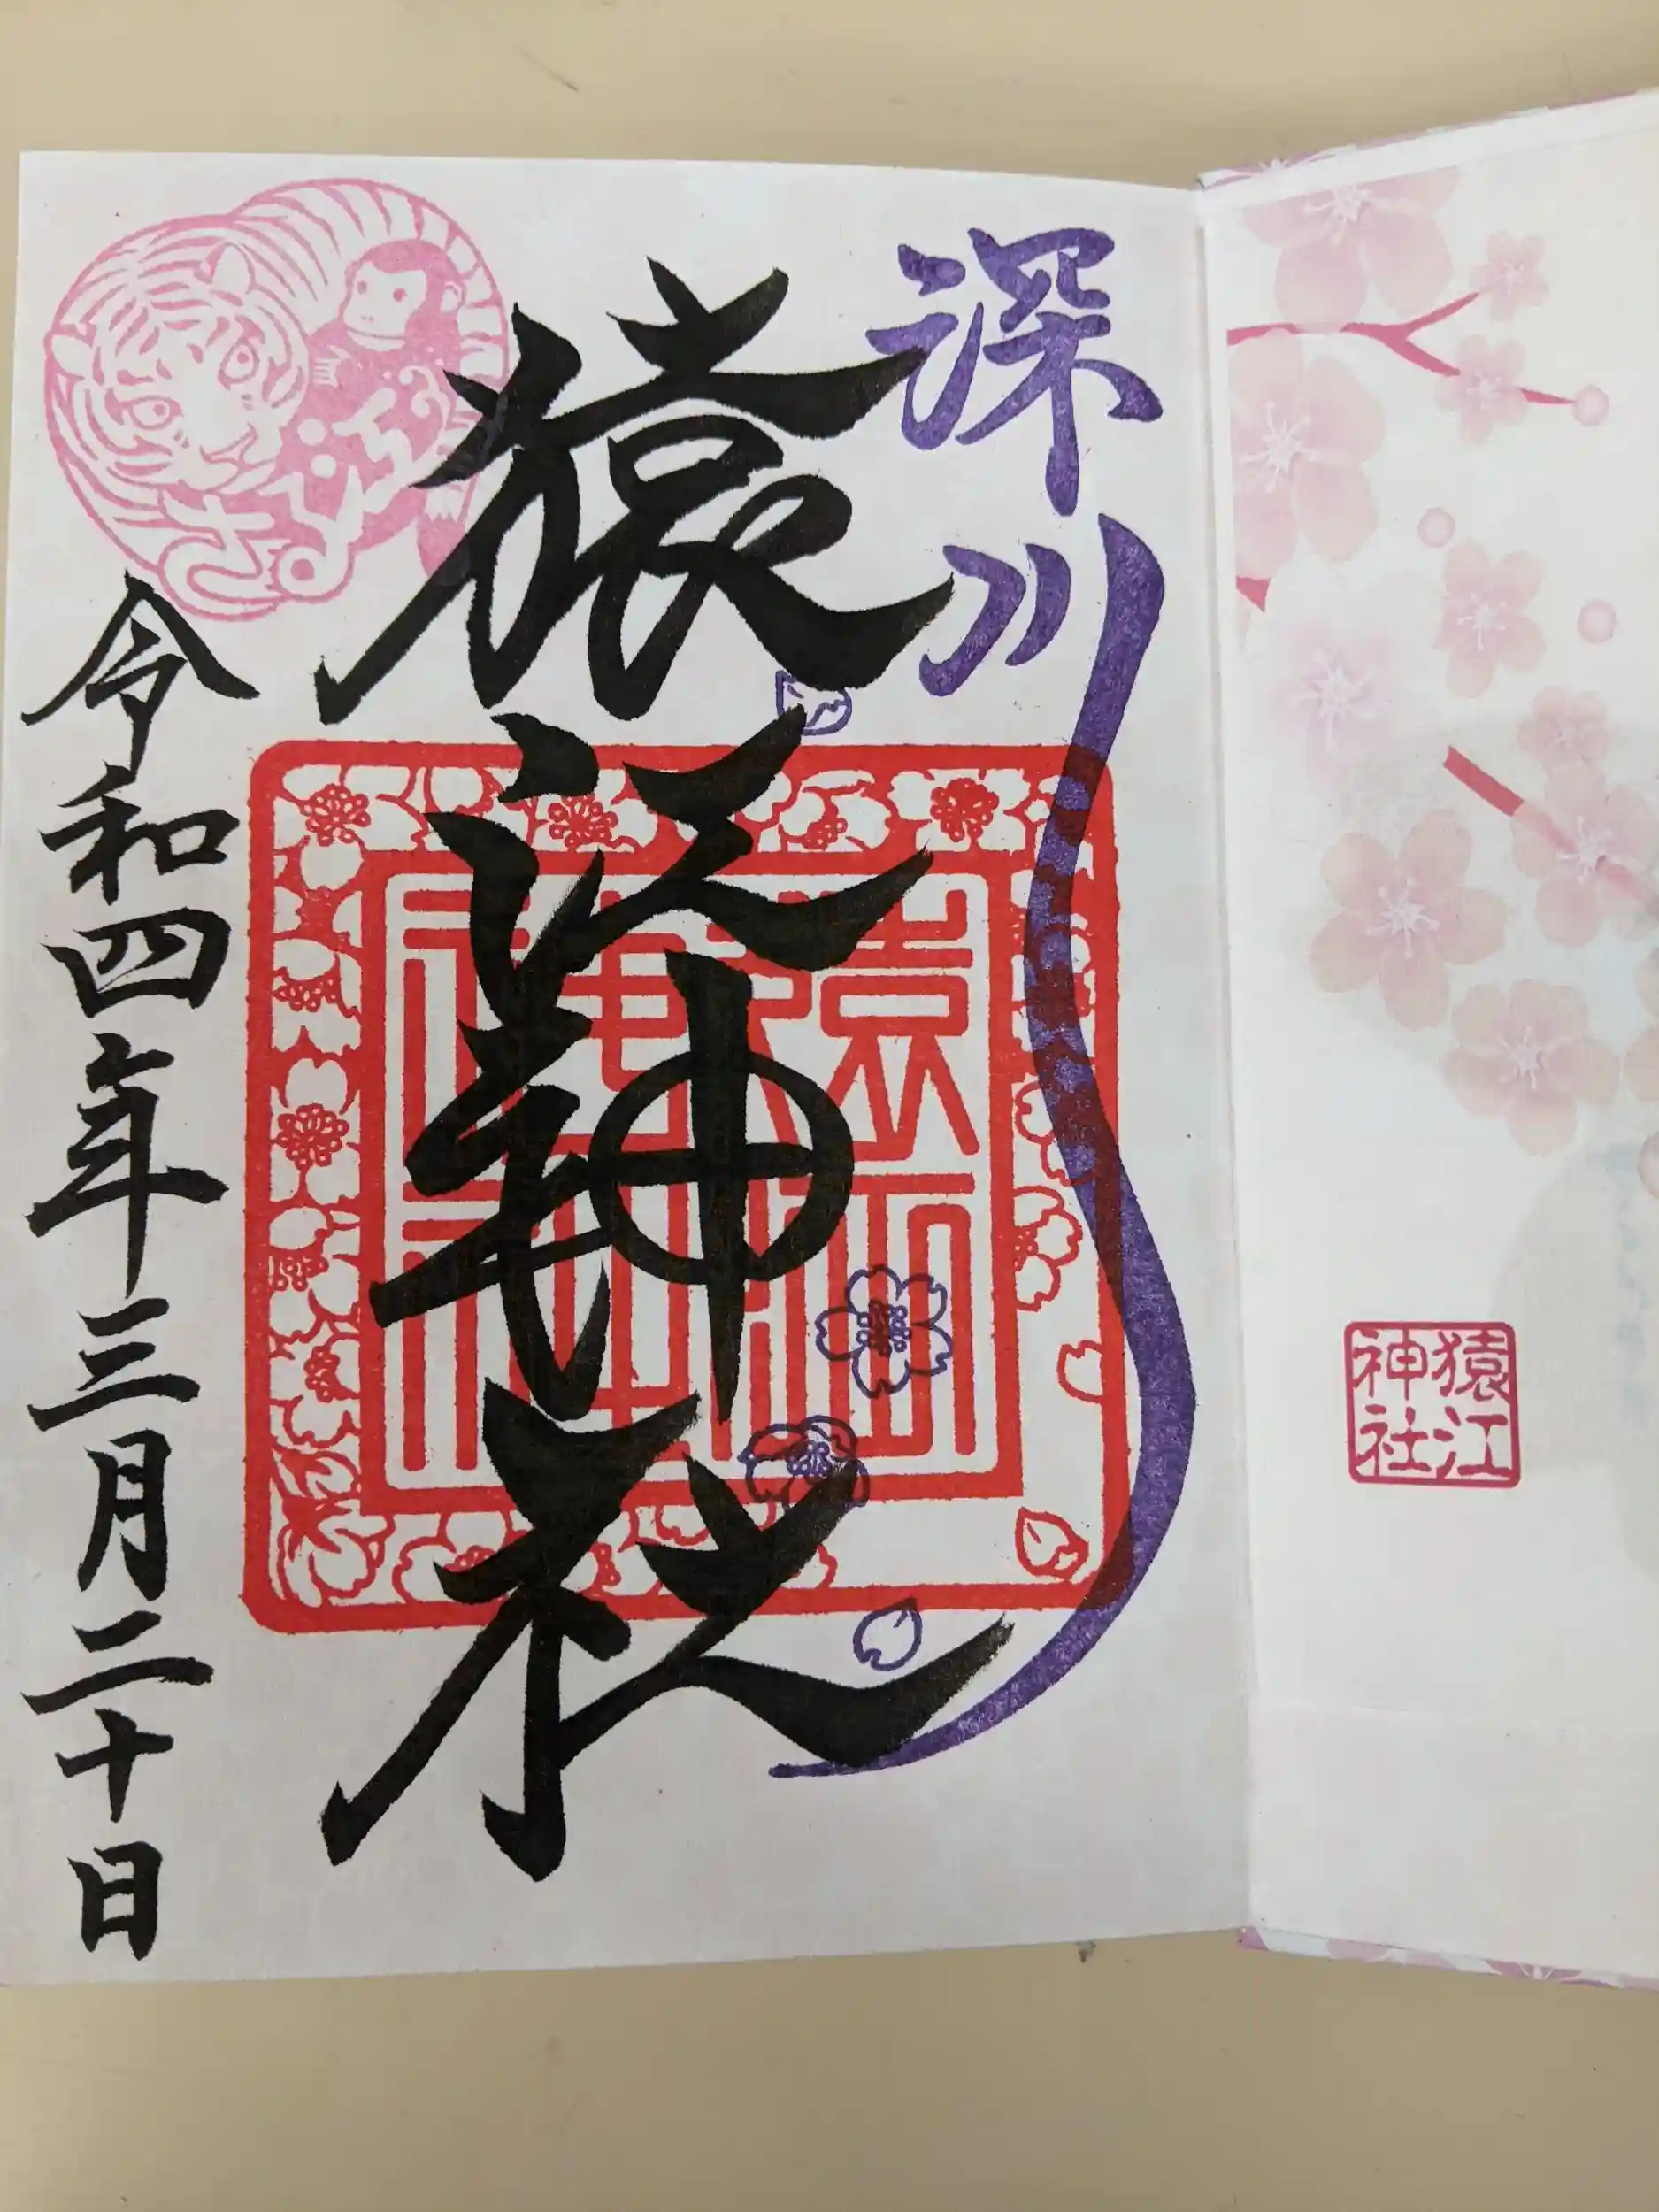 猿江
神社
深川
猿江神社
猿江神社
さる江
令和四年三月二十日